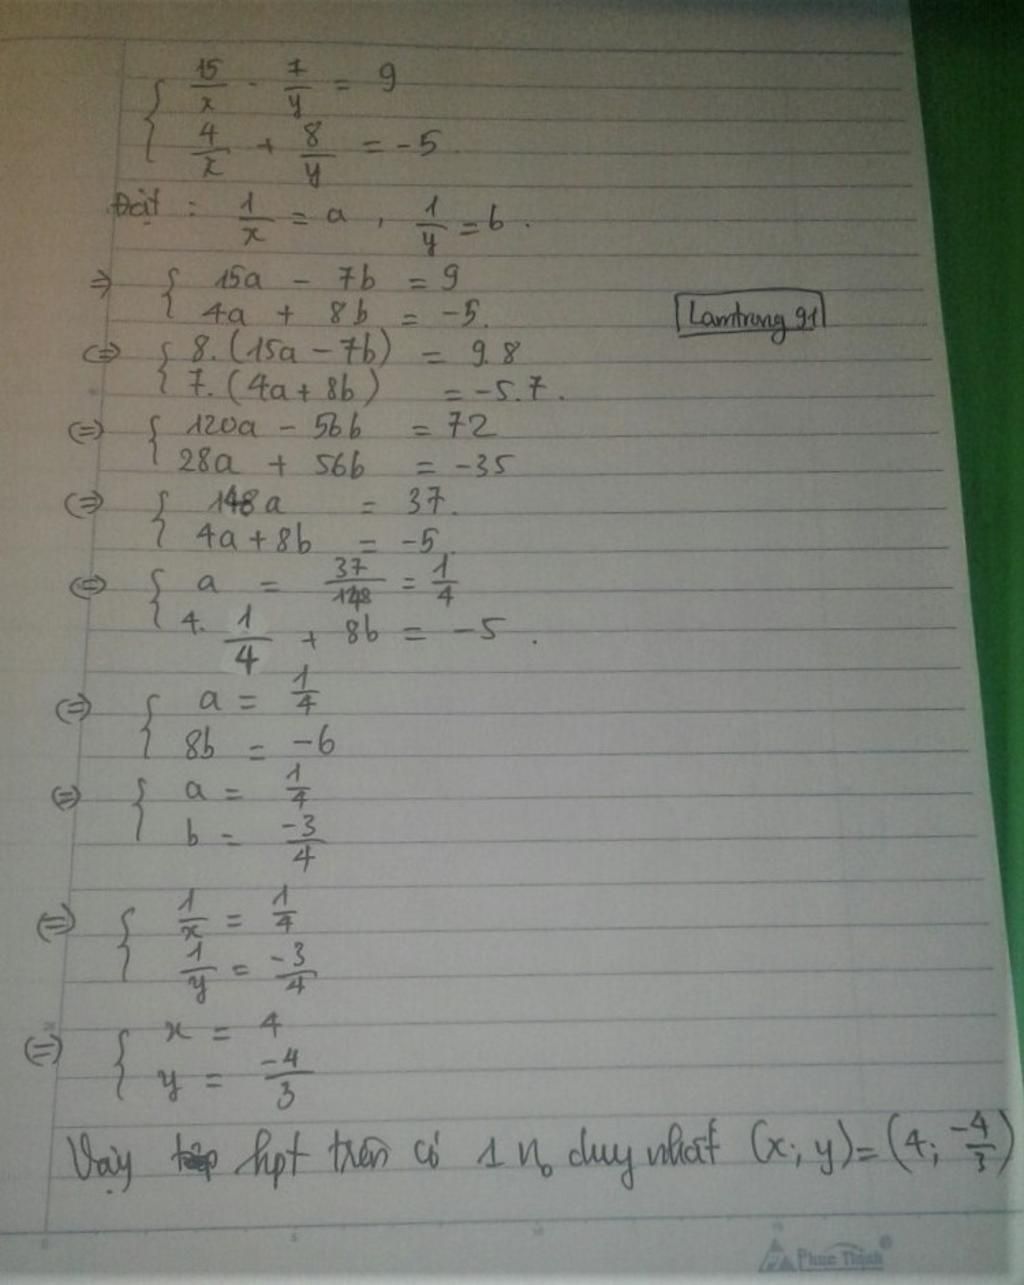 { 15/x - 7/y = 9
4/x + 8/y = -5
Đặt : 1/x = a , 1/y = b .
=> { 15a - 7b = 9
4a + 8b = -5.
Lamtrung 91
<=> { 8.(15a - 7b) = 9.8
7.(4a + 8b) = -5.7.
<=> { 120a - 56b = 72
28a + 56b = -35
<=> { 148a = 37.
4a + 8b = -5.
<=> { a = 37/148 = 1/4
4. 1/4 + 8b = -5 .
<=> { a = 1/4
8b = -6
<=> { a = 1/4
b = -3/4
<=> { 1/x = 1/4
1/y = -3/4
<=> { x = 4
y = -4/3
Vậy hpt trên có 1 no duy nhất (x; y) = (4; -4/3)
Phuc Thinh